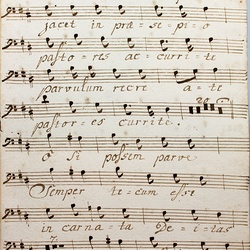 jacet in præ=se=pi=o
pasto=res ac=curri=te
parvulum recre a=te
pastor=es currite.
O si possem parve
Semper te=cum esse
in carna=ta De=i=tas